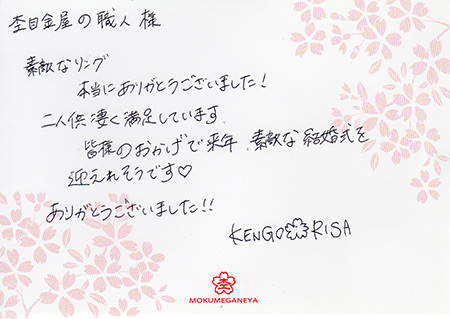 杢目金屋の職人 様
素敵なリング
本当にありがとうございました!
二人供凄く満足しています.
皆様のおかげで来年、素敵な結婚式を
迎えれそうです♡
ありがとうございました!!
KENGO RISA
杢
MOKUMEGANEYA